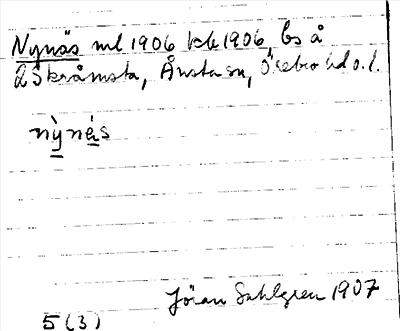 Nynäs ml 1906 kb 1906, bs å
2 Skråmsta, Ånsta sn, Örebro hd o. l.
nỳnás
Jöran Sahlgren 1907
5 (3)